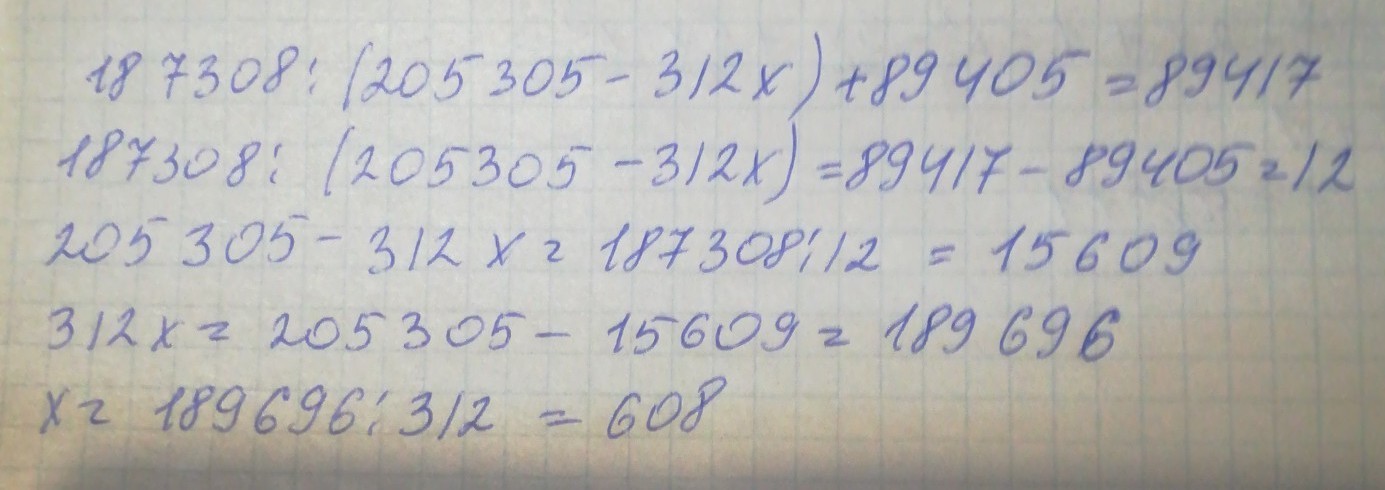 187308:(205305-312x)+89405=89417
187308:(205305-312x)=89417-89405=12
205305-312x=187308:12=15609
312x=205305-15609=189696
x=189696:312=608